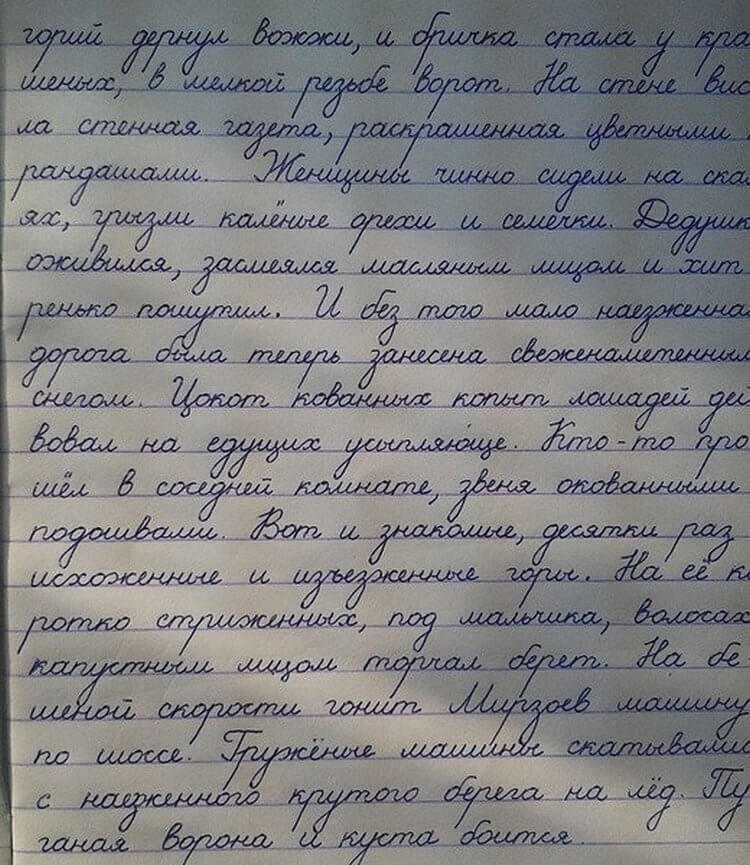 горий дернул вожжи, и бричка стала у кра
шеных, в мелкой резьбе ворот. На стене вис
ла стенная газета, раскрашенная цветными
рандашами. Женщины чинно сидели на ска
ях, грызли калёные орехи и семечки. Дедушк
оживился, засмеялся масляным лицом и хит
ренько пошутил. И без того мало наезженна
дорога была теперь занесена свеженаметенным
снегом. Цокот кованных копыт лошадей дей
вовал на едущих усыпляюще. Кто-то про
шёл в соседней комнате, звеня окованными
подошвами. Вот и знакомые, десятки раз
исхоженные и изъезженные горы. На её к
ротко стриженных, под мальчика, волосах
капустным лицом торчал берет. На бе
шеной скорости гонит Мирзоев машину
по шоссе. Гружёные машины скатывалис
с наезженного крутого берега на лёд. Пу
ганая ворона и куста боится.